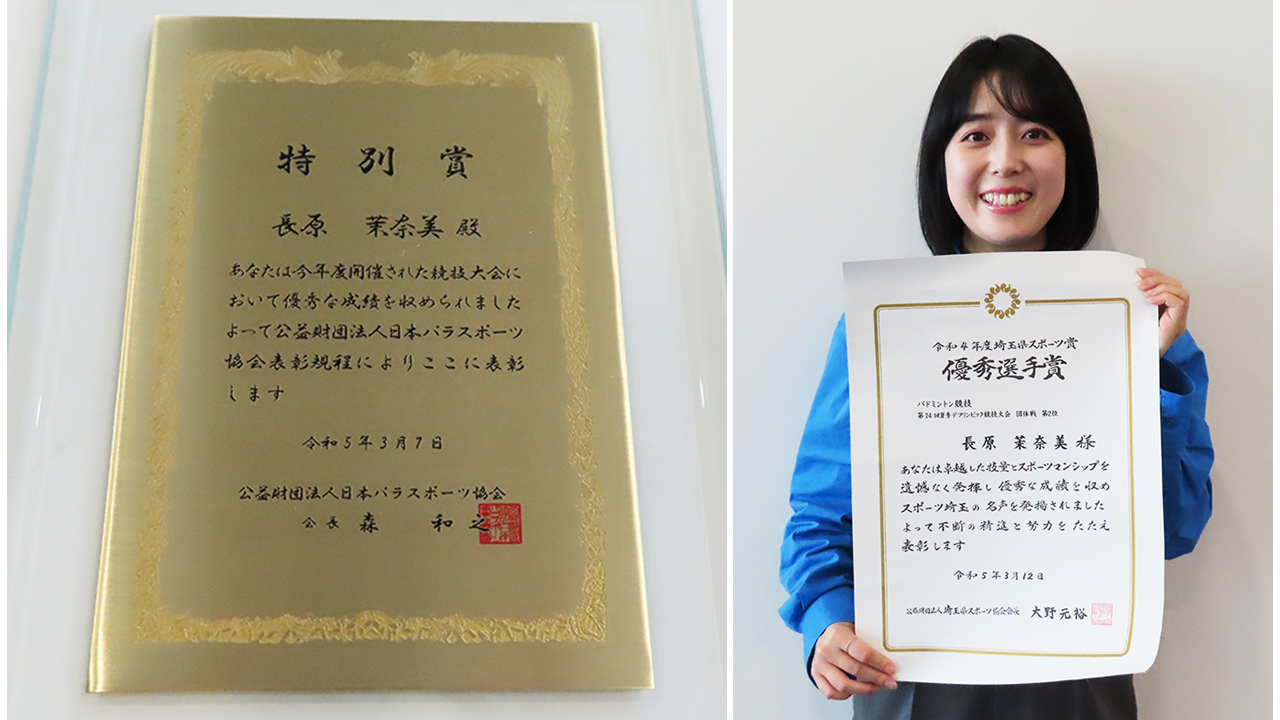 特別賞
長原 茉奈美 殿
あなたは今年度開催された競技大会に
おいて優秀な成績を収められました
よって公益財団法人日本パラスポーツ
協会表彰規程によりここに表彰
します
令和5年3月7日
公益財団法人日本パラスポーツ協会
会長 森 和之
令和4年度埼玉県スポーツ賞
優秀選手賞
バドミントン競技
第24回夏季デフリンピック競技大会 団体戦 第2位
長原 茉奈美 様
あなたは卓越した技量とスポーツマンシップを
遺憾なく発揮し優秀な成績を収め
スポーツ埼玉の名声を発揚されました
よって不断の精進と努力をたたえ
表彰します
令和5年3月12日
公益財団法人埼玉県スポーツ協会会長 大野元裕